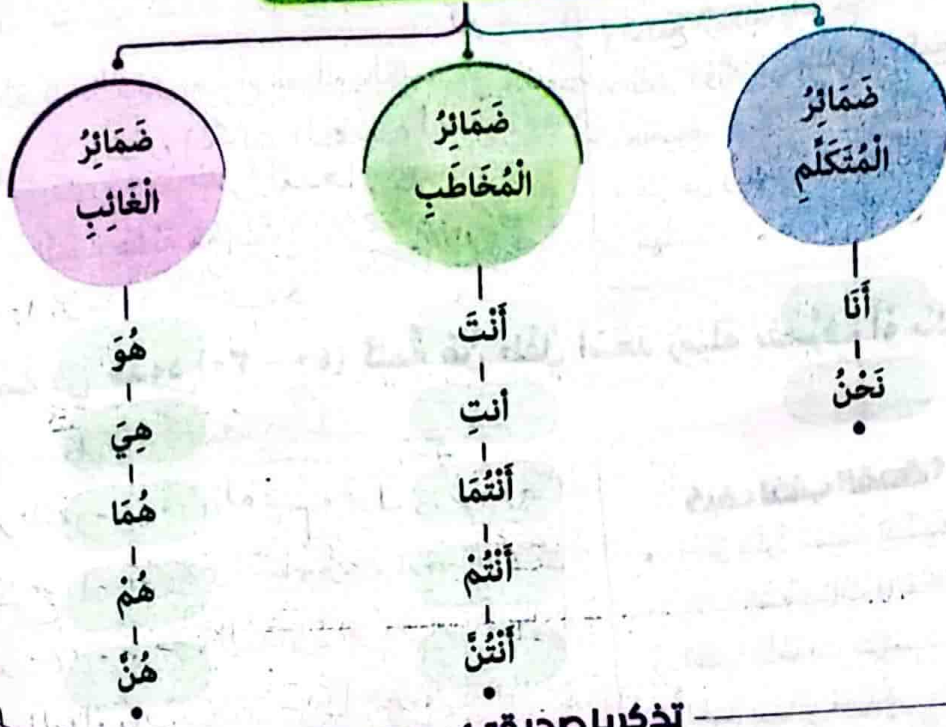 ضَمَائِرُ
الْمُتَكَلِّمِ
أَنَا
نَحْنُ
ضَمَائِرُ
الْمُخَاطَبِ
أَنْتَ
أنتِ
أَنْتُمَا
أَنْتُمْ
أَنْتُنَّ
ضَمَائِرُ
الْغَائِبِ
هُوَ
هِيَ
هُمَا
هُمْ
هُنَّ